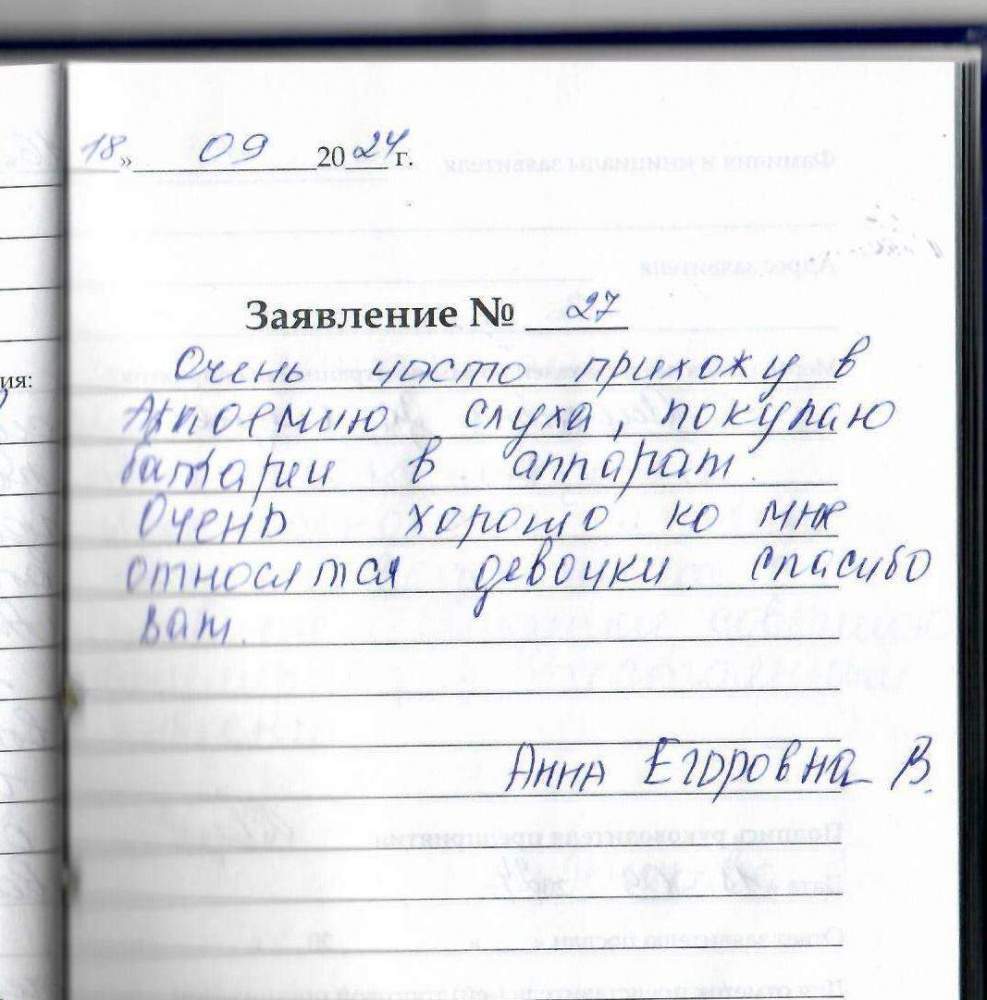 18» 09 2024 г.
Заявление № 27
ия:
Очень часто прихожу в
Академию слуха, покупаю
батареи в аппарат.
Очень хорошо ко мне
относятся девочки. спасибо
вам.
Анна Егоровна В.